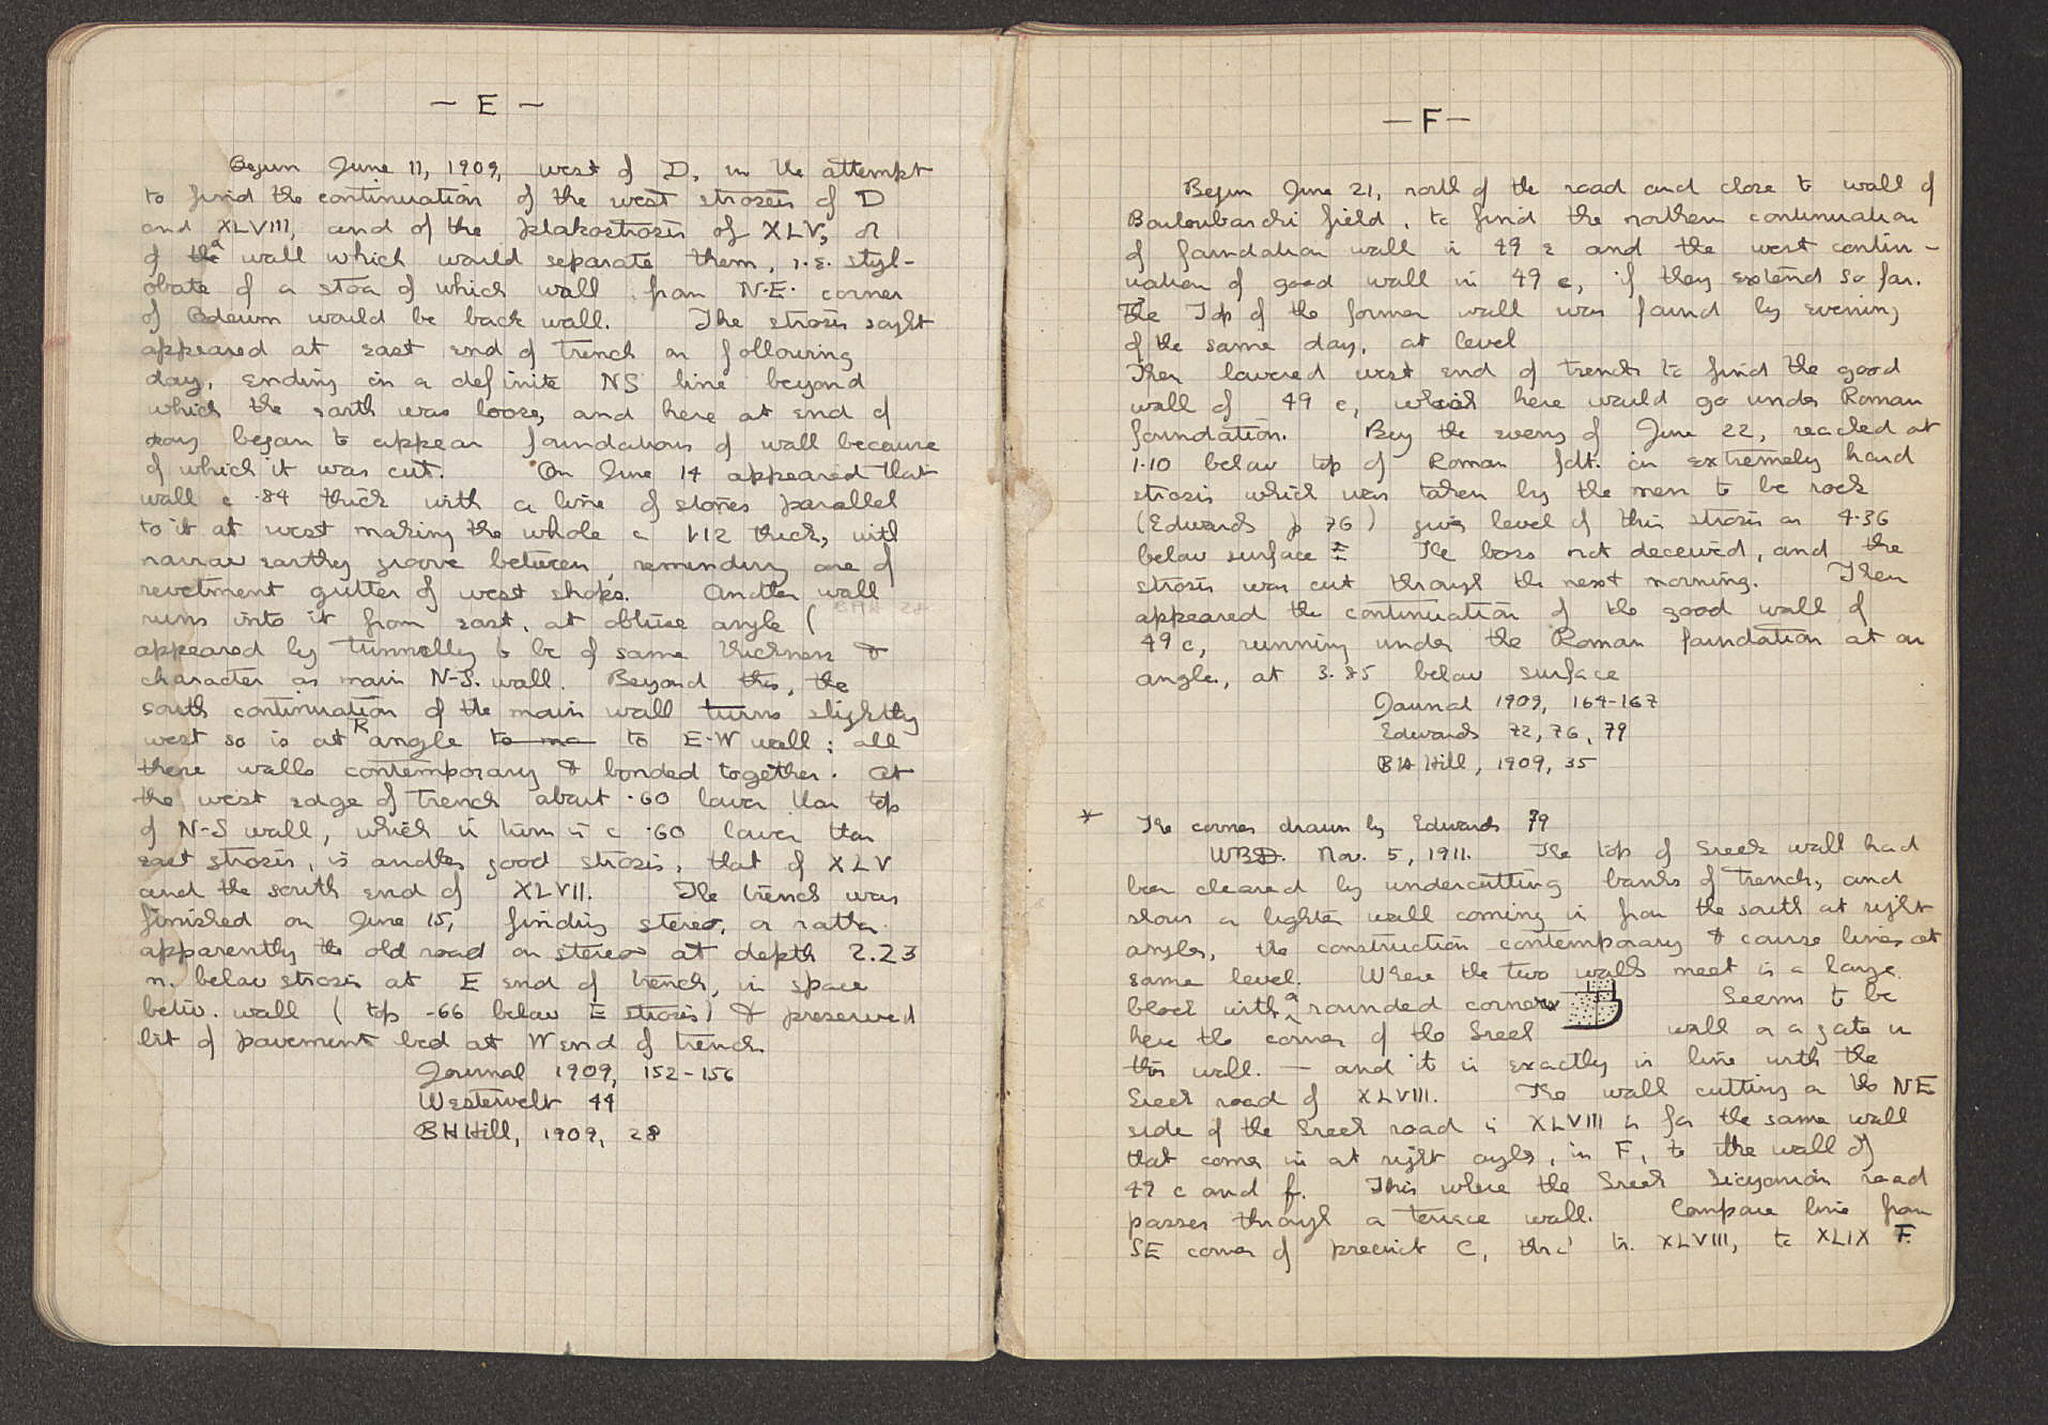 — E —
Begun June 11, 1909, west of D, in the attempt
to find the continuation of the west strosis of D
and XLVIII, and of the plakostrosis of XLV, or
of a wall which would separate them, i.e. styl-
obate of a stoa of which wall from N.E. corner
of Odeum would be back wall. The strosis soght
appeared at east end of trench on following
day, ending in a definite NS line beyond
which the earth was loose, and here at end of
day began to appear foundations of wall because
of which it was cut. On June 14 appeared that
wall c .84 thick with a line of stones parallel
to it at west making the whole c 1.12 thick, with
narrow earthy groove between, reminding one of
revetment gutter of west shops. Another wall
runs into it from east, at obtuse angle (
appeared by tunnelling to be of same thickness &
character as main N-S. wall. Beyond this, the
south continuation of the main wall turns slightly
west so is at R angle to ma to E-W wall: all
these walls contemporary & bonded together. At
the west edge of trench about .60 lower than top
of N-S wall, which in turn is c .60 lower than
east strosis, is another good strosis, that of XLV
and the south end of XLVII. The trench was
finished on June 15, finding stereo, or rather
apparently the old road on stereo at depth 2.23
m. below strosis at E end of trench, in space
betw. wall (top -66 below E strosis) & preserved
bit of pavement bed at W end of trench.
Journal 1909, 152-156
Westervelt 44
BHHill, 1909, 28
— F —
Begun June 21, north of the road and close to wall of
Bouloubarchi field, to find the northern continuation
of foundation wall in 49 E and the west contin-
uation of good wall in 49 c, if they extend so far.
The Top of the former wall was found by evening
of the same day, at level
Then lowered west end of trench to find the good
wall of 49 c, which here would go under Roman
foundation. By the eveng of June 22, reached at
1.10 below top of Roman fdt. an extremely hard
strosis which was taken by the men to be rock
(Edwards p 76) givig level of this strosis as 4.36
below surface The boss not deceived, and the
strosis was cut through the next morning. Then
appeared the continuation of the good wall of
49 c, running under the Roman foundation at an
angle, at 3.85 below surface
Journal 1909, 164-167
Edwards 72, 76, 79
BH Hill, 1909, 35
* The corner drawn by Edwards 79
WBD. Nov. 5, 1911. The top of Greek wall had
been cleared by undercutting banks of trench, and
shows a lighter wall coming in from the south at right
angles, the construction contemporary & course lines at
same level. Where the two walls meet is a large
block with a rounded corner Seems to be
here the corner of the Greek wall or a gate in
this wall. — and it is exactly in line with the
Greek road of XLVIII. The wall cutting on the NE
side of the Greek road in XLVIII is for the same wall
that comes in at right angles, in F, to the wall of
49 c and f. This where the Greek Sicyonian road
passes through a terrace wall. Compare line from
SE corner of precinct C, thro' tr. XLVIII, to XLIX F.